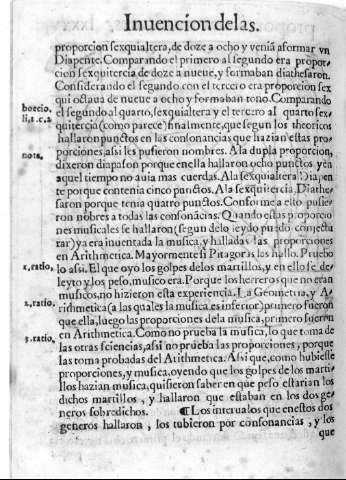 Inuencion delas.
proporcion sexquialtera, de doze a ocho y veniã aformar vn
Diapente. Comparando el primero al segundo era propor-
cion sexquitercia de doze a nueue, y formaban diathesaron.
Considerando el segundo con el tercero era proporcion sex
qui octaua de nueue a ocho y formaban tono. Comparando
boecio.
li, 1. c. 2
el segundo al quarto, sexquialtera y el tercero al quarto sex-
quitercia (como parece) finalmente, que segun los theoricos
hallaron punctos en las consonancias que hazian estas pro-
porciones, assi les pusieron nombres. A la dupla proporcion,
nota.
dixeron diapason porque enella hallaron ocho punctos, y en
aquel tiempo no auia mas cuerdas. Ala sexquialtera Diapen
te porque contenia cinco punctos. Ala sexquitercia, Diathe
saron porque tenia quatro punctos. Conforme a esto pusie-
ron nõbres a todas las consonãcias. Quando estas proporcio
nes musicales se hallaron (segun delo leydo puedo conjectu
rar) ya era inuentada la musica, y halladas las proporciones
en Arithmetica. Mayormente si Pitagoras las hallo. Pruebo
1, ratio,
lo assi. El que oyo los golpes delos martillos, y en ello se de
leyto y los peso, musico era. Porque los herreros que no eran
musicos, no hizieron esta experiencia. La Geometria, y A-
2, ratio,
rithmetica (a las quales la musica es inferior) primero fueron
que ella, luego las proporciones dela musica, primero fuerõ
en Arithmetica. Como no prueba la musica, lo que toma de
3, ratio,
las otras sciencias, assi no prueba las proporciones, porque
las toma probadas del Atithmetica. Assi que, como hubiesse
proporciones, y musica, oyendo que los golpes de los marti-
llos hazian musica, quisieron saber en que peso estarian los
dichos martillos, y hallaron que estaban en los dos ge-
neros sobredichos. ¶ Los interualos que enestos dos
generos hallaron, los tubieron por consonancias, y los
que